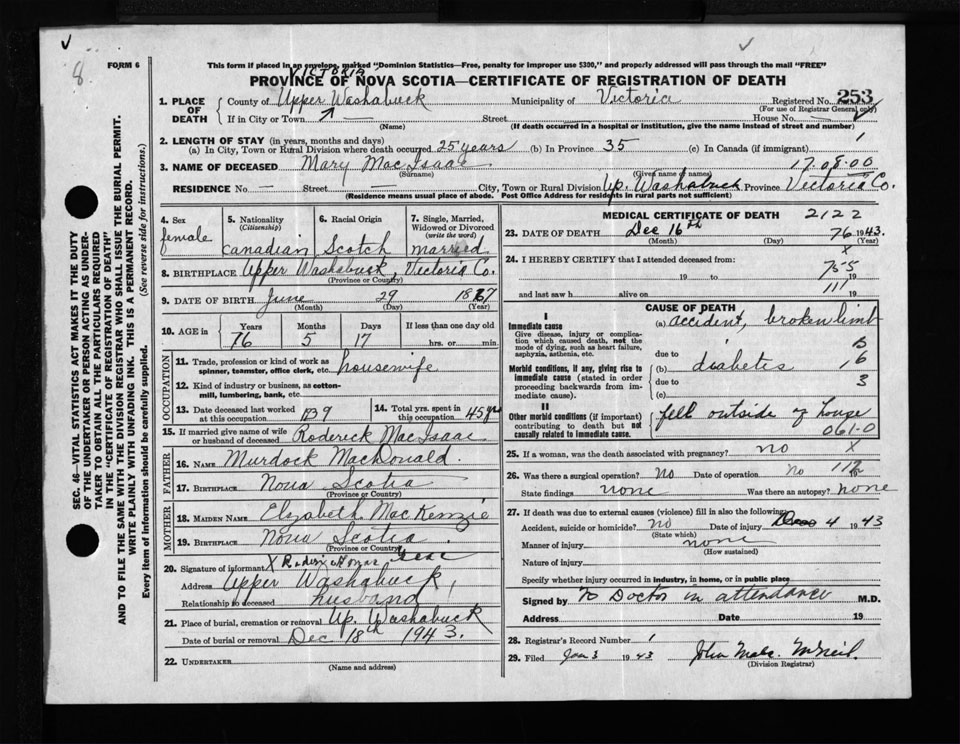 8
FORM 6
This form if placed in an envelope, marked "Dominion Statistics—Free, penalty for improper use $300," and properly addressed will pass through the mail "FREE"
VICTORIA
PROVINCE OF NOVA SCOTIA—CERTIFICATE OF REGISTRATION OF DEATH
1. PLACE OF DEATH County of Upper Washabuck Municipality of Victoria Registered No. 253
(For use of Registrar General only)
If in City or Town — Street House No. —
(Name) (If death occurred in a hospital or institution, give the name instead of street and number)
2. LENGTH OF STAY (in years, months and days)
(a) In City, Town or Rural Division where death occurred 25 years (b) In Province 35 (c) In Canada (if immigrant)
3. NAME OF DECEASED Mary MacIsaac 17.08.00
(Surname) (Given name or names)
RESIDENCE No. — Street — City, Town or Rural Division Up. Washabuck Province Victoria Co.
(Residence means usual place of abode. Post Office Address for residents in rural parts not sufficient)
4. Sex female
5. Nationality (Citizenship) Canadian
6. Racial Origin Scotch
7. Single, Married, Widowed or Divorced (write the word) married
8. BIRTHPLACE Upper Washabuck, Victoria Co.
(Province or Country)
9. DATE OF BIRTH June 29 1867
(Month) (Day) (Year)
10. AGE in Years 76 Months 5 Days 17 If less than one day old hrs. or min.
OCCUPATION
11. Trade, profession or kind of work as spinner, teamster, office clerk, etc. housewife
12. Kind of industry or business, as cotton-mill, lumbering, bank, etc.
13. Date deceased last worked at this occupation
14. Total yrs. spent in this occupation 45 yrs
15. If married give name of wife or husband of deceased Roderick MacIsaac
FATHER
16. NAME Murdock MacDonald.
17. BIRTHPLACE Nova Scotia
(Province or Country)
MOTHER
18. MAIDEN NAME Elizabeth MacKenzie
19. BIRTHPLACE Nova Scotia
(Province or Country)
20. Signature of informant X
Address Upper Washabuck
Relationship to deceased husband
21. Place of burial, cremation or removal Up. Washabuck
Date of burial or removal Dec 18th 1943.
22. UNDERTAKER
(Name and address)
MEDICAL CERTIFICATE OF DEATH 2122
23. DATE OF DEATH Dec 16th 76 1943.
(Month) (Day) (Year)
24. I HEREBY CERTIFY that I attended deceased from: x
19 to 755 19
and last saw h alive on 111 19
CAUSE OF DEATH
I
Immediate cause
Give disease, injury or complication which caused death, not the mode of dying, such as heart failure, asphyxia, asthenia, etc.
(a) accident, broken limb
due to
Morbid conditions, if any, giving rise to immediate cause (stated in order proceeding backwards from immediate cause).
(b) diabetes 6
due to 3
(c)
II
Other morbid conditions (if important) contributing to death but not causally related to immediate cause.
fell outside of house
061-0
25. If a woman, was the death associated with pregnancy? no x
26. Was there a surgical operation? No Date of operation No
State findings none Was there an autopsy? none
27. If death was due to external causes (violence) fill in also the following:
Accident, suicide or homicide? no Date of injury Dec 4 1943
(State which)
Manner of injury none
(How sustained)
Nature of injury
Specify whether injury occurred in industry, in home, or in public place
Signed by No Doctor in attendance M.D.
Address Date 19
28. Registrar's Record Number 1
29. Filed Jan 3 1943 John McNeil.
(Division Registrar)
SEC. 46—VITAL STATISTICS ACT MAKES IT THE DUTY OF THE UNDERTAKER OR PERSON ACTING AS UNDERTAKER TO OBTAIN ALL THE PARTICULARS REQUIRED IN THE "CERTIFICATE OF REGISTRATION OF DEATH"
AND TO FILE THE SAME WITH THE DIVISION REGISTRAR WHO SHALL ISSUE THE BURIAL PERMIT.
WRITE PLAINLY WITH UNFADING INK. THIS IS A PERMANENT RECORD.
Every item of information should be carefully supplied. (See reverse side for instructions.)